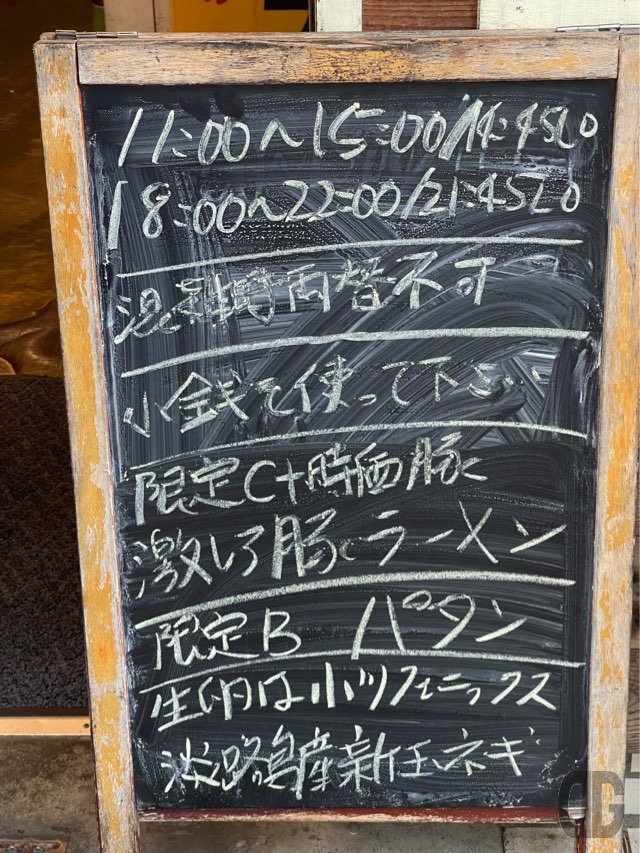 11:00〜15:00/14:45LO
18:00〜22:00/21:45LO
混雑時両替不可
小銭を使って下さい
限定C+時価豚
激しろ豚ラーメン
限定B パタン
生卵は小ツフェニックス
淡路島産新玉ネギ